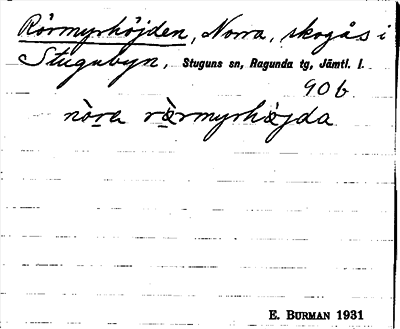 Rörmyrhöjden, Norra, skogås i
Stugubyn, Stuguns sn, Ragunda tg, Jämtl. l.
90 b.
nò̱ra ræ̱̀rmyrhæ̱jda
E. BURMAN 1931